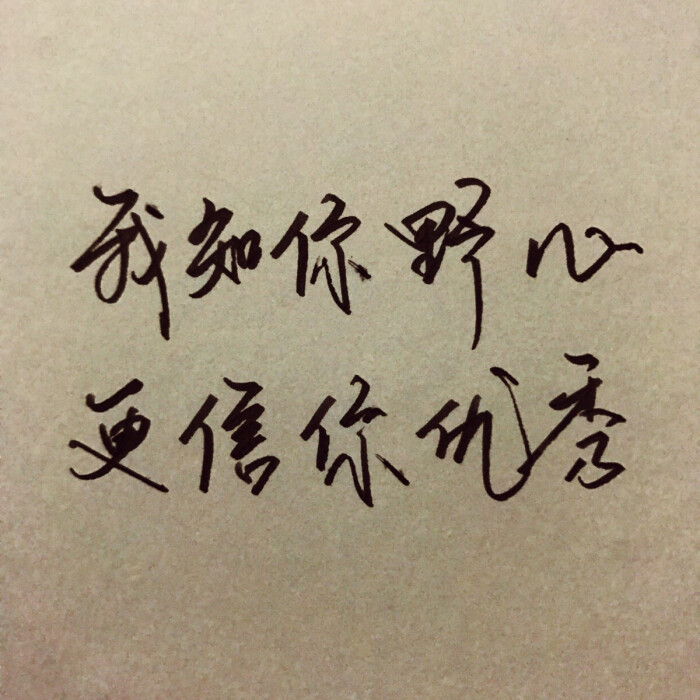 我知你野心
更信你优秀